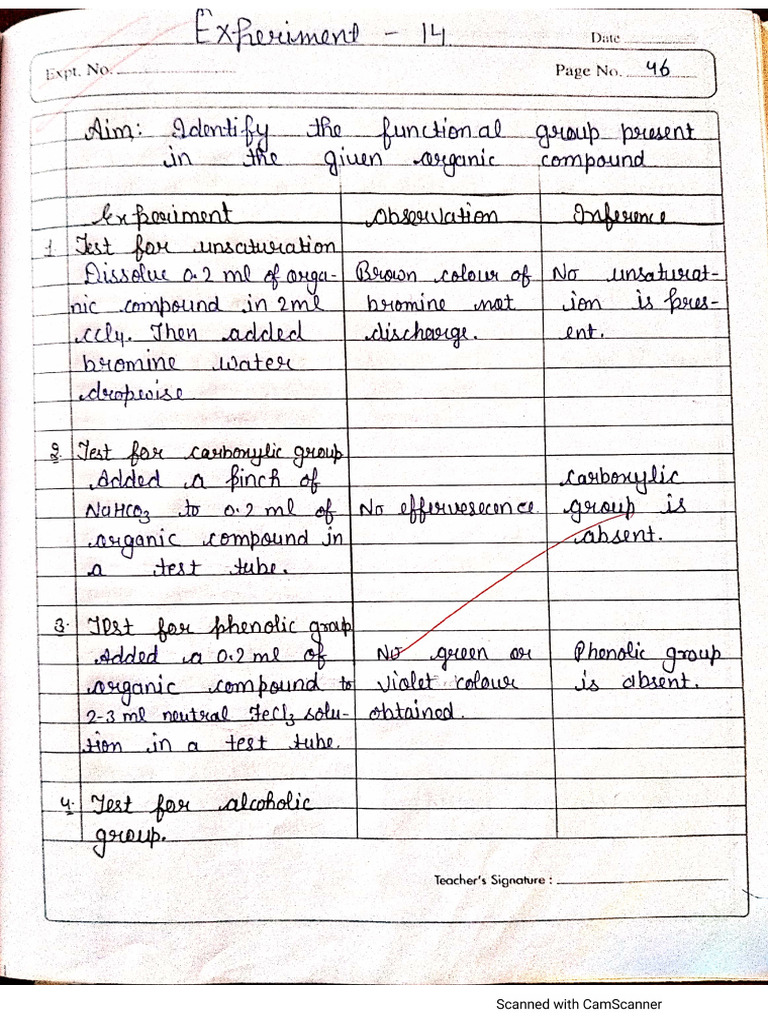 Experiment - 14
Date
Expt. No.
Page No. 46
Aim: Identify the functional group present
in the given organic compound
Experiment
Observation
Inference
1 Test for unsaturation
Dissolve 0.2 ml of orga-
nic compound in 2ml
ccl4. Then added
bromine water
dropwise
Brown colour of
bromine not
discharge.
No unsaturat-
ion is pres-
ent.
2. Test for carboxylic group
Added a pinch of
NaHCO3 to 0.2 ml of
organic compound in
a test tube.
No effervesecence
carboxylic
group is
absent.
3. Test for phenolic group
Added a 0.2 ml of
organic compound to
2-3 ml neutral FeCl3 solu-
tion in a test tube.
No green or
violet colour
obtained.
Phenolic group
is absent.
4. Test for alcoholic
group.
Teacher's Signature :
Scanned with CamScanner